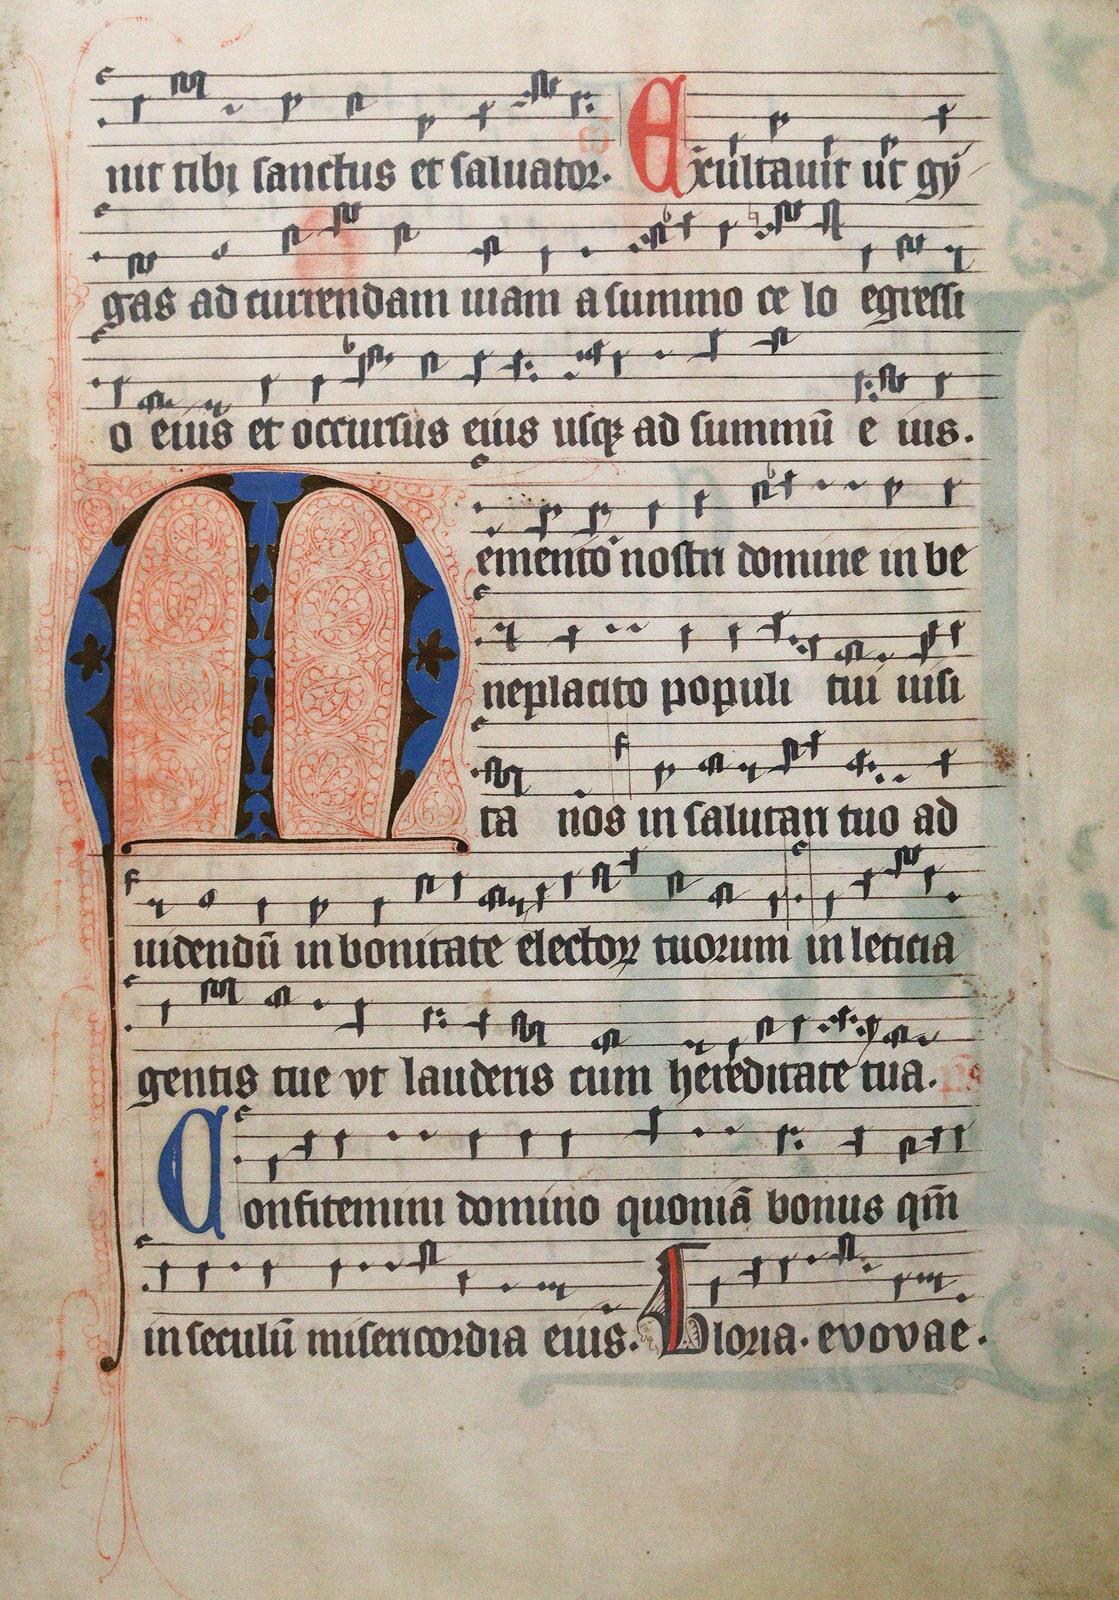 nit tibi sanctus et saluator. Exultauit ut gy
gas ad currendam uiam a summo ce lo egressi
o eius et occursus eius usqꝫ ad summū e ius.
Memento nostri domine in be
neplacito populi tui uisi
ta nos in salutari tuo ad
uidendū in bonitate electoꝝ tuorum in leticia
gentis tue vt lauderis cum hereditate tua. ps
Confitemini domino quoniā bonus qm̄
in seculū misericordia eius. Gloria. evovae.